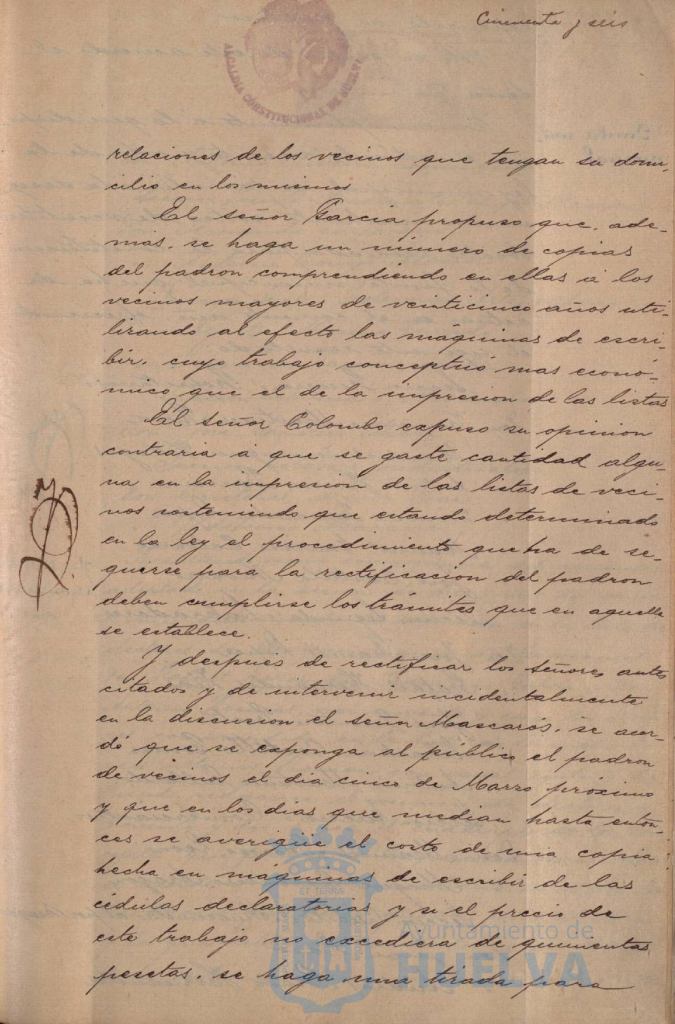 Cincuenta y seis
ALCALDIA CONSTITUCIONAL DE HUELVA
relaciones de los vecinos que tengan su domi-
cilio en los mismos
El señor Garcia propuso que, ade-
más, se haga un número de copias
del padron comprendiendo en ellas á los
vecinos mayores de veinticinco años uti-
lizando al efecto las máquinas de escri-
bir, cuyo trabajo conceptuó mas econó-
mico que el de la impresion de las listas
El señor Colombo expuso su opinion
contraria á que se gaste cantidad algu-
na en la impresion de las listas de veci-
nos sosteniendo que estando determinado
en la ley el procedimiento que ha de se-
guirse para la rectificacion del padron
deben cumplirse los trámites que en aquella
se establece.
Y después de rectificar los señores antes
citados y de intervenir incidentalmente
en la discusion el señor Mascarós, se acor-
dó que se exponga al público el padron
de vecinos el dia cinco de Marzo próximo
y que en los dias que median hasta enton-
ces se averigüe el costo de una copia
hecha en máquinas de escribir de las
cédulas declaratorias y si el precio de
este trabajo no excediera de quinientas
pesetas, se haga una tirada para
Ayuntamiento de
HUELVA